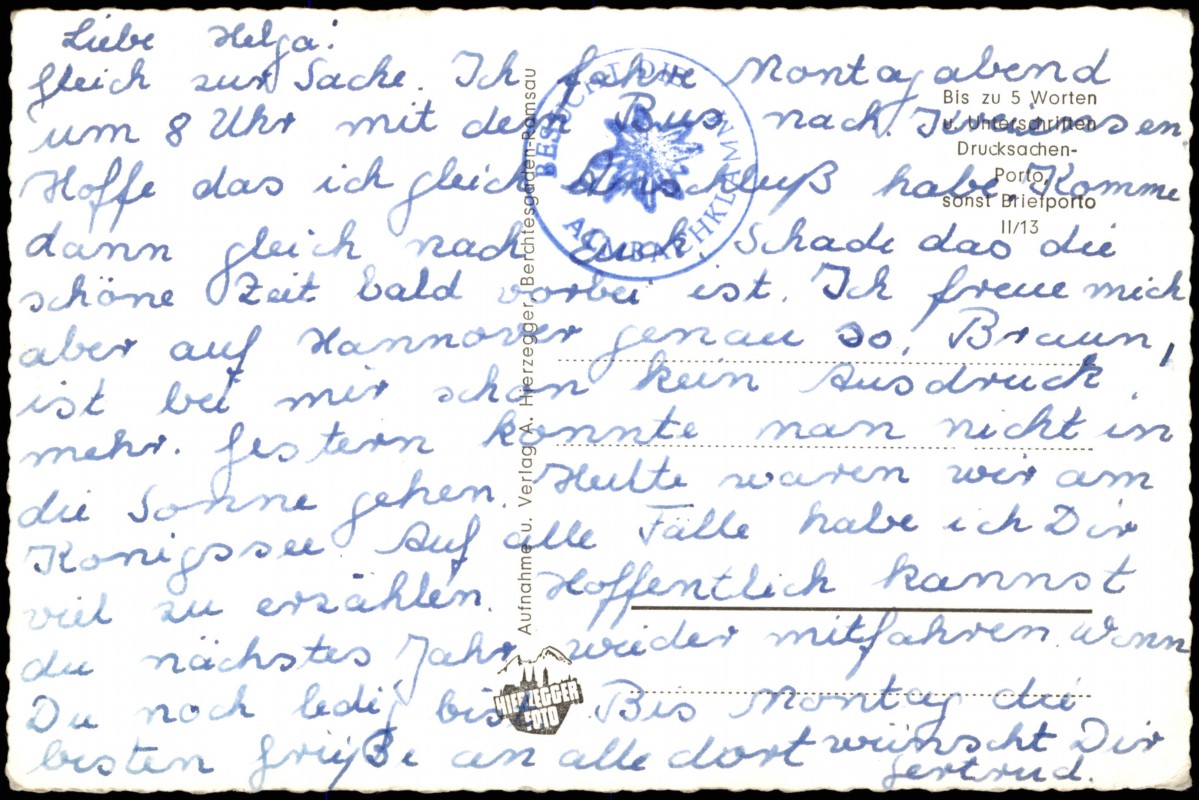 Liebe Helga!
Gleich zur Sache. Ich fahre Montag abend
um 8 Uhr mit dem Bus nach
Hoffe das ich gleich Anschluß habe. Komme
dann gleich nach Euch. Schade das die
schöne Zeit bald vorbei ist. Ich freue mich
aber auf Hannover genau so. Braun,
ist bei mir schon kein Ausdruck
mehr. Gestern konnte man nicht in
die Sonne gehen. Heute waren wir am
Königssee. Auf alle Fälle habe ich Dir
viel zu erzählen. Hoffentlich kannst
du nächstes Jahr wieder mitfahren. Wenn
Du noch ledig bist. Bis Montag die
besten Grüße an alle dort wünscht Dir
Gertrud.
BESUCHT DIE
ALMBACHKLAMM
Bis zu 5 Worten
u. Unterschriften
Drucksachen-
Porto,
sonst Briefporto
II/13
Aufnahme u. Verlag A. Hierzegger, Berchtesgaden-Ramsau
HIERZEGGER
FOTO